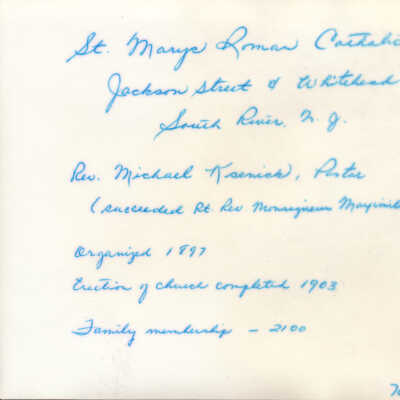 St. Marys Roman Catholic
Jackson Street & Whitehead
South River, N. J.
Rev. Michael Ksenick, Pastor
(succeeded Rt. Rev Monseigneur
Organized 1897
Erection of church completed 1903
Family membership – 2100